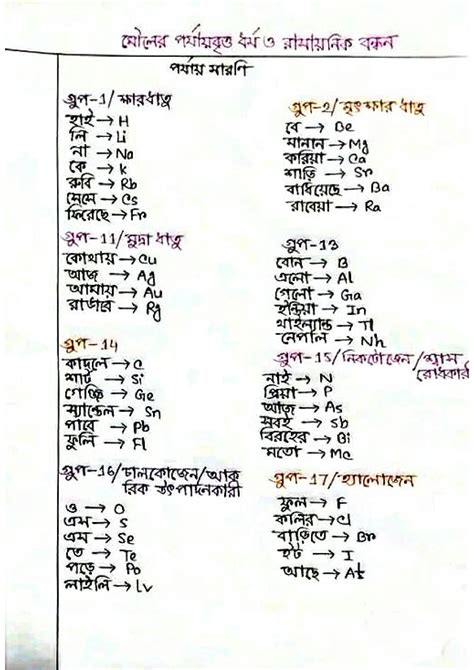 মৌলের পর্যায়বৃত্ত ধর্ম ও রাসায়নিক বন্ধন
পর্যায় সারণি
গ্রুপ-1/ক্ষারধাতু
হাই → H
লি → Li
না → Na
কে → K
রুবি → Rb
সেসে → Cs
ফিরেছে → Fr
গ্রুপ-2/মৃৎক্ষার ধাতু
বে → Be
মানান → Mg
করিয়া → Ca
শাড়ি → Sr
বাধিয়েছে → Ba
রাবেয়া → Ra
গ্রুপ-11/মুদ্রা ধাতু
কোথায় → Cu
আজ → Ag
আমায় → Au
রাডারে → Rg
গ্রুপ-13
বোন → B
এলো → Al
গেলো → Ga
ইন্ডিয়া → In
থাইল্যান্ড → Tl
নেপালি → Nh
গ্রুপ-14
কাদলে → C
শার্ট → Si
গেঞ্জি → Ge
স্যান্ডেল → Sn
পাবে → Pb
ফুলি → Fl
গ্রুপ-15/নিকটোজেন/শ্বাস
রোধকারী
নাই → N
প্রিয়া → P
আজ → As
সবই → Sb
বিরহের → Bi
মতো → Mc
গ্রুপ-16/চালকোজেন/আক
রিক উৎপাদনকারী
ও → O
এস → S
এস → Se
তে → Te
পড়ে → Po
লাইলি → Lv
গ্রুপ-17/হ্যালোজেন
ফুল → F
কলির → Cl
বাড়িতে → Br
ইট → I
আছে → At